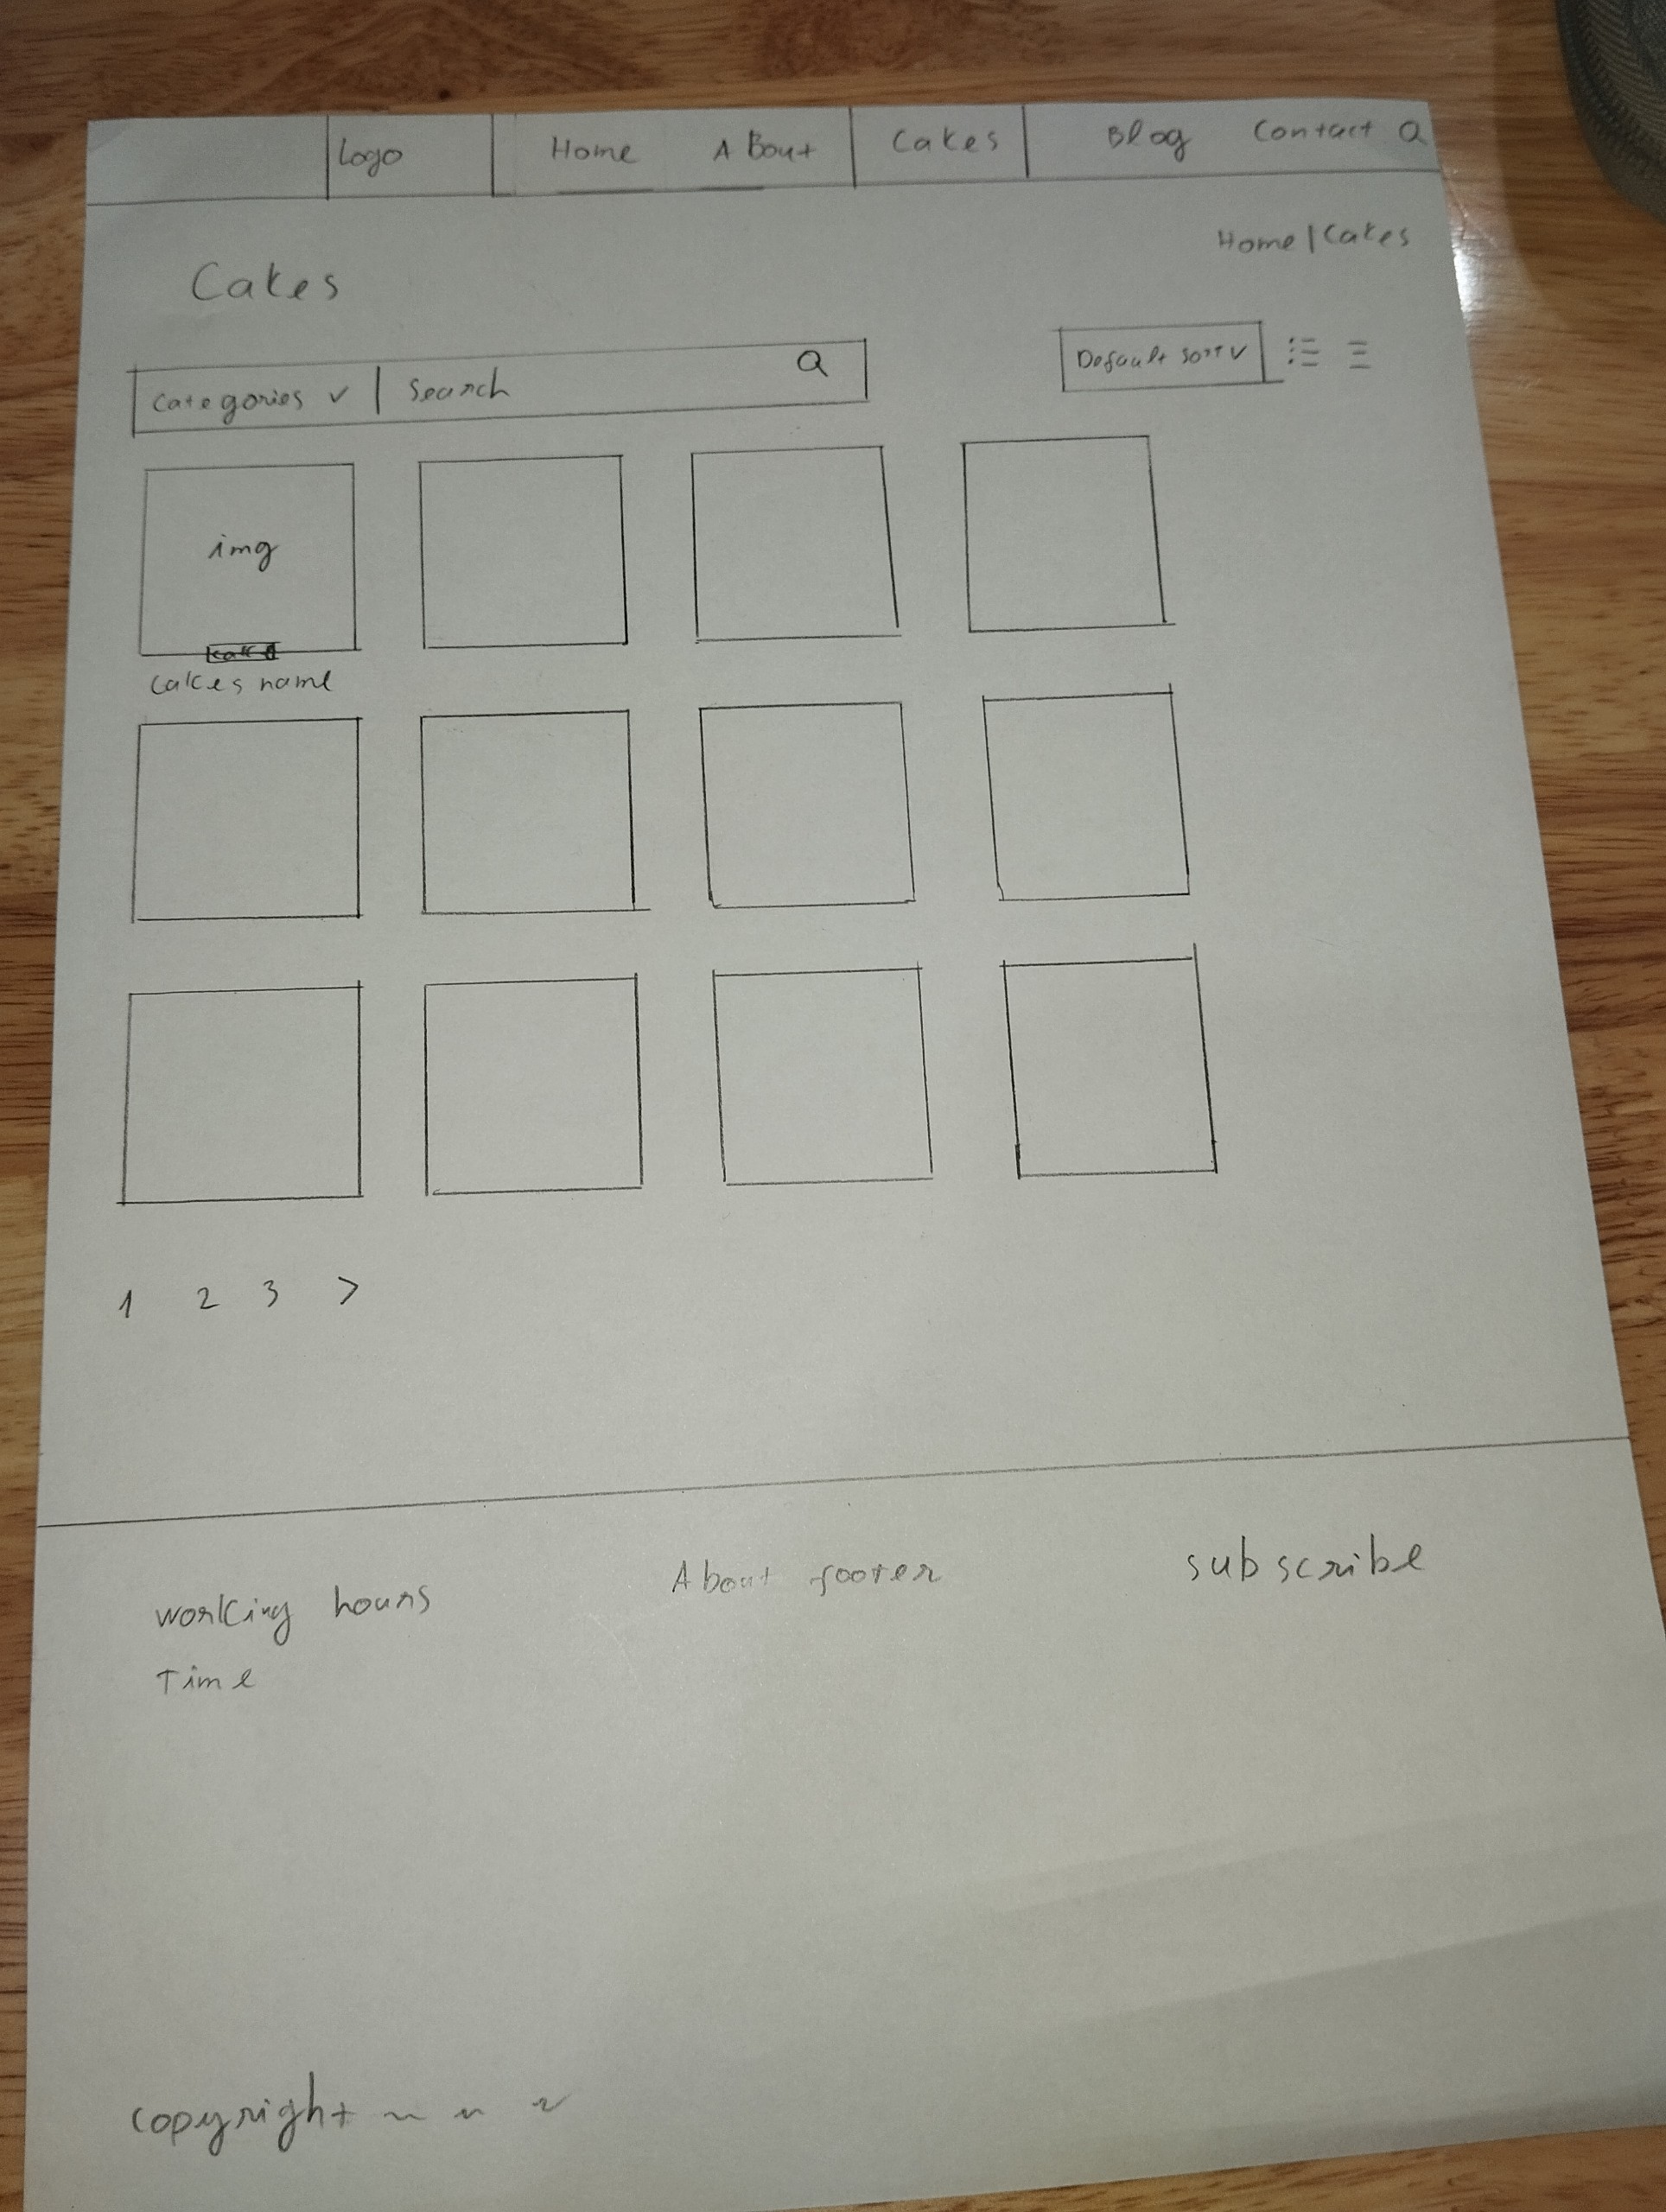 Logo Home About Cakes Blog Contact
Home | Cakes
Cakes
Categories | Search
Default sort
img
Cakes name
1 2 3 >
working hours
Time
About footer
subscribe
copyright